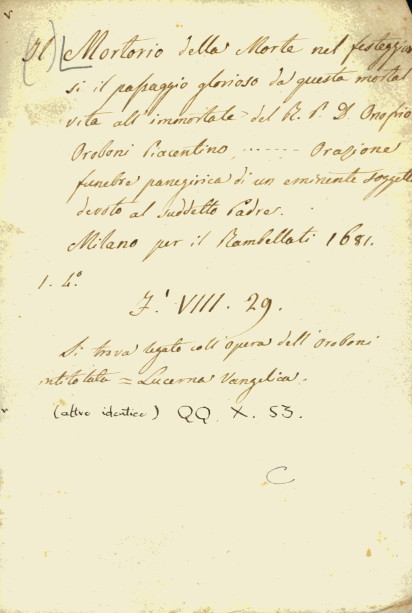 Il Mortorio della Morte nel festeggiar
si il passaggio glorioso da questa mortal
vita all' immortale del R. P. D. Onofrio
Oroboni Piacentino ....... Orazione
funebre panegirica di un eminente soggett
devoto al suddetto Padre.
Milano per il Rambellati 1681.
1. 4.º
VIII. 29.
Si trova legato coll' opera dell' Oroboni
intitolata = Lucerna Vangelica.
(altro identico) QQ. X. 53.
C